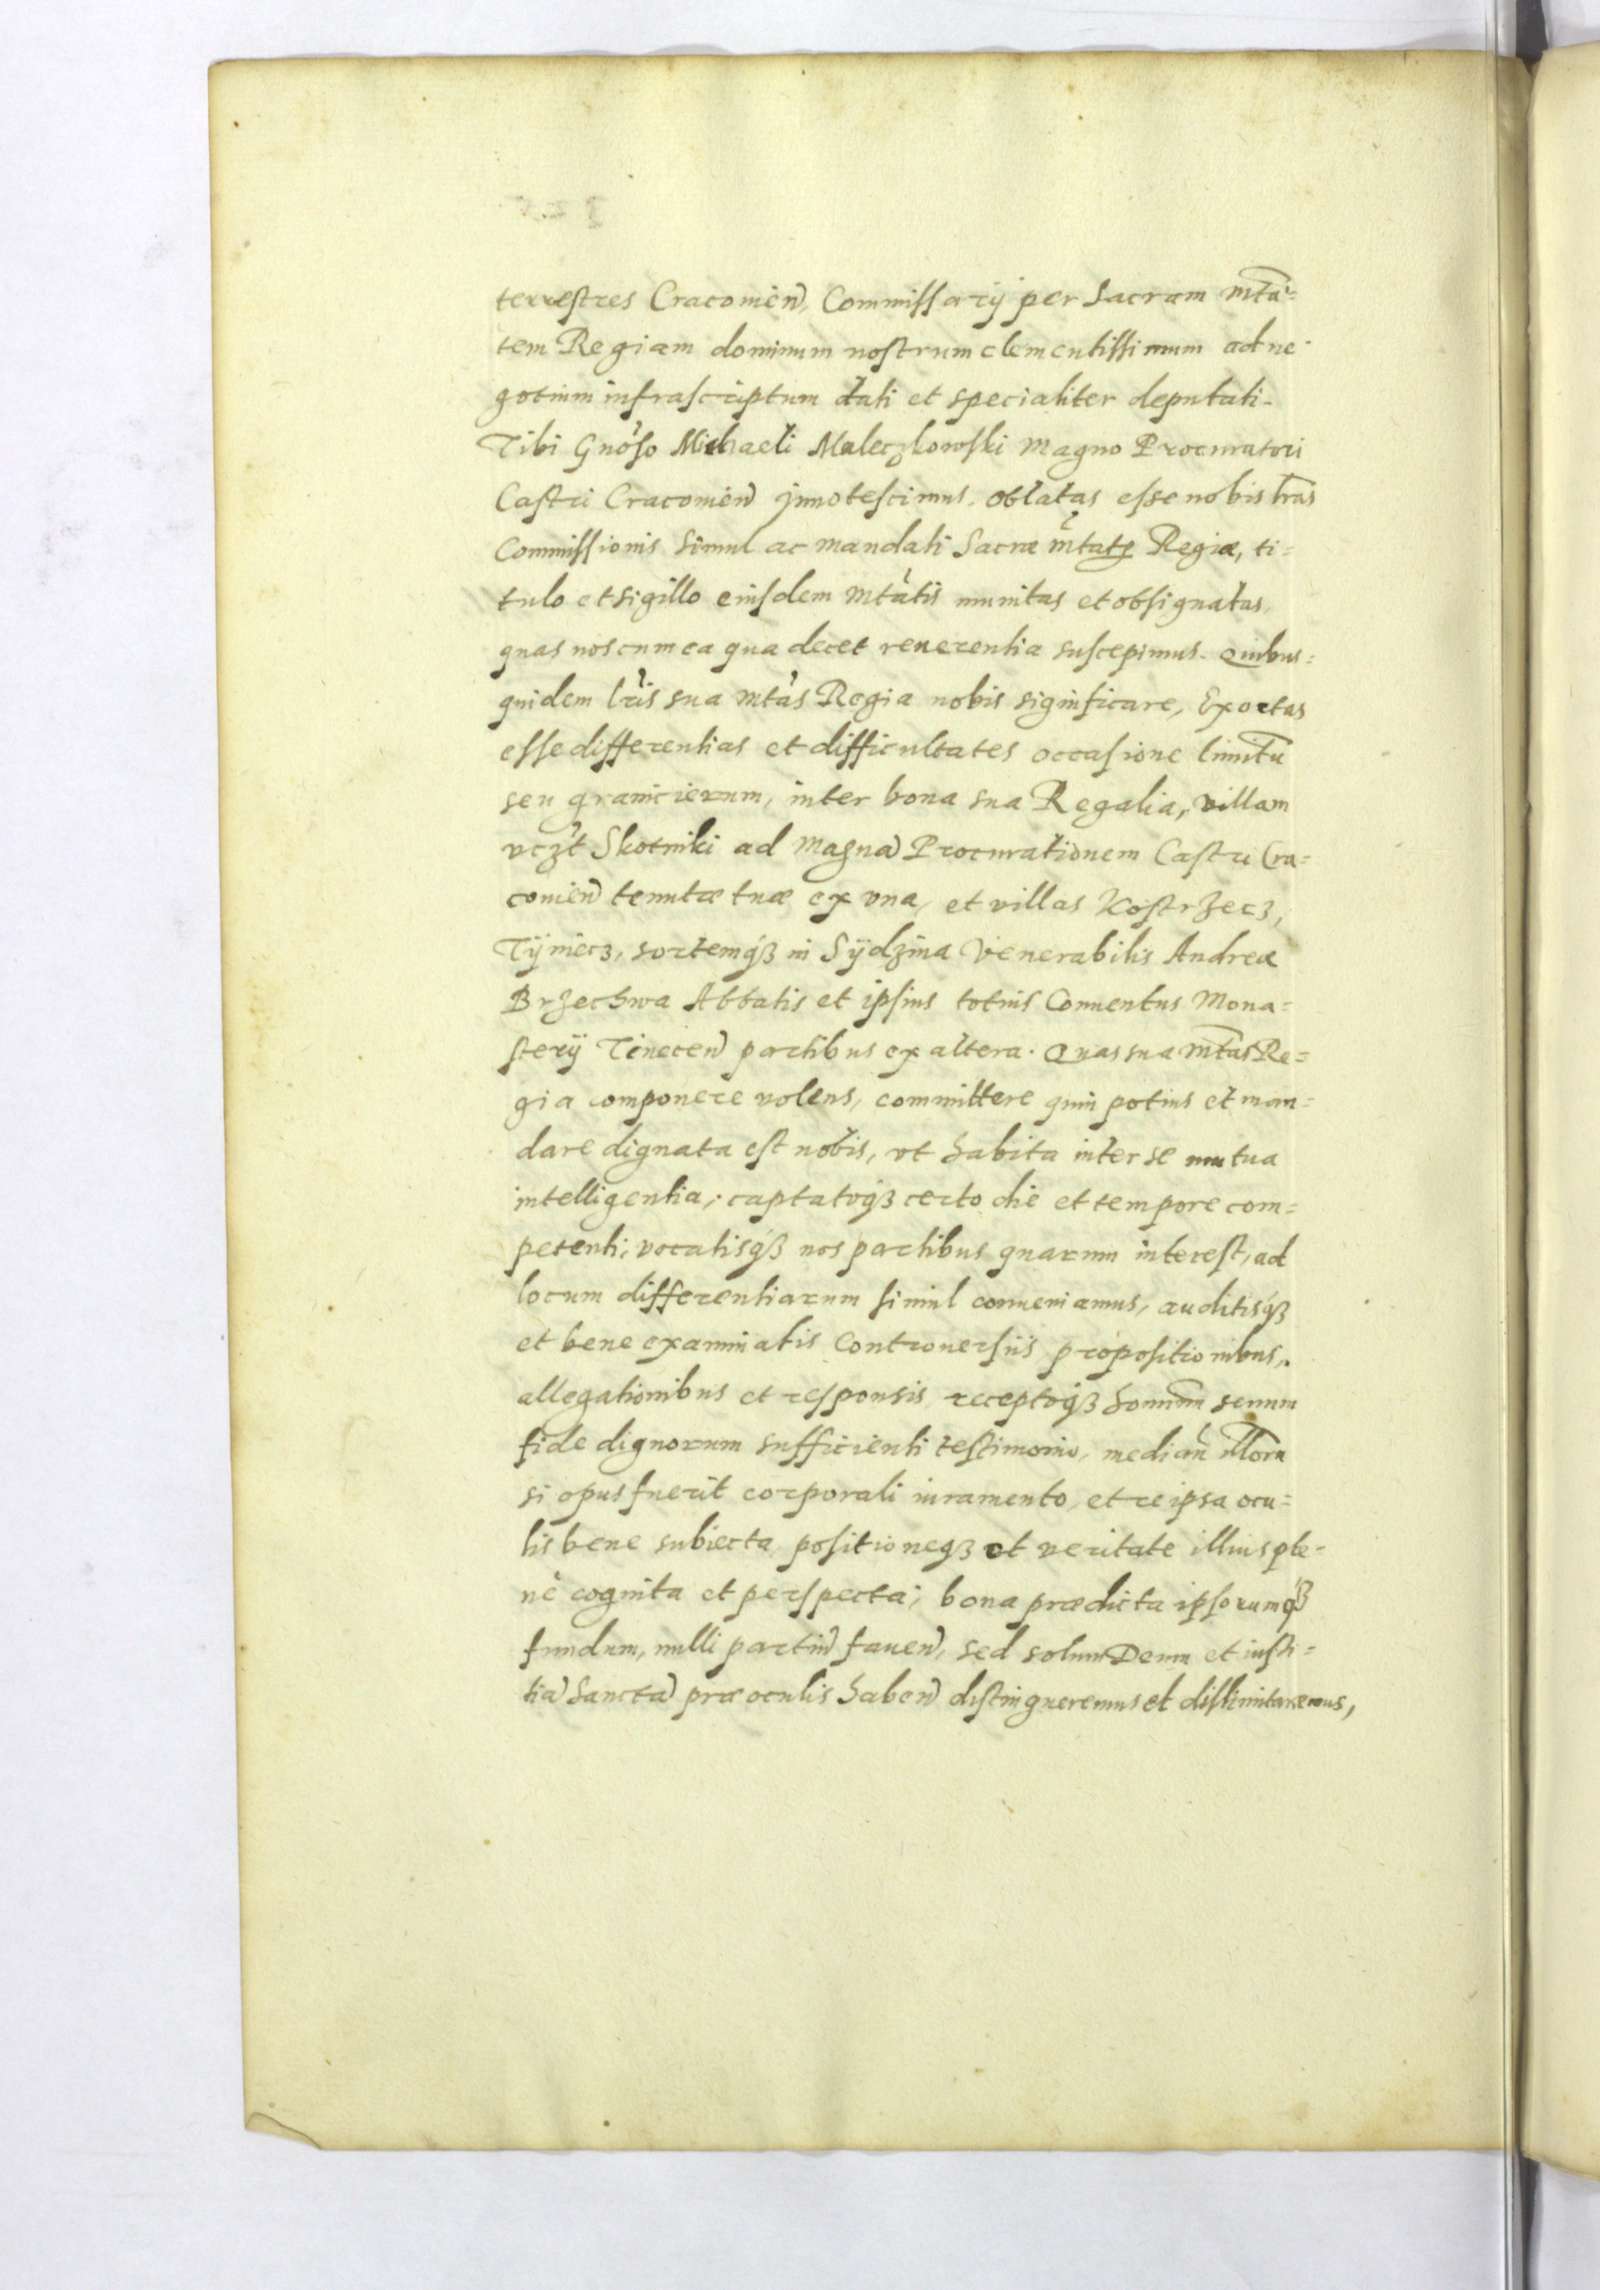 terrestres Cracouien̄, Commissarij per Sacram Mtã=
tem Regiam dominum nostrum clementissimum ad ne-
gotium infrascriptum dati et specialiter deputati.
Tibi Gnõso Michaeli Maleczkowski Magno Procuratori
Castri Cracouien̄ Jnnotescimus. Oblatas esse nobis lr̃as
Commissionis Simul ac mandati Sacræ Mtãtꝭ Regiæ, ti=
tulo et sigillo eiusdem Mtãtis munitas et obsignatas,
quas nos cum ea qua decet reuerentia suscepimus. Quibus=
quidem lr̃is sua Mtãs Regia nobis significare, Exortas
esse differentias et difficultates occasione limitũ
seu granicierum, inter bona sua Regalia, villam
vczt̃ Skotniki ad Magnã Procurationem Castri Cra=
couien̄ tenutæ tuæ ex vna, et villas Kostrzecz,
Tÿniecz, sortemqꝫ in Sÿdzina Venerabilis Andreæ
Brzechwa Abbatis et ipsius totius Conuentus Mona=
sterÿ Tinecen̄ partibus ex altera. Quas sua Mtãs Re=
gia componere volens, committere quin potius et man=
dare dignata est nobis, vt habita inter se mutua
intelligentia, captatoqꝫ certo die et tempore com=
petenti, vocatisqꝫ nos partibus quarum interest, ad
locum differentiarum simul conueniamus, auditisqꝫ
et bene examinatis Controuersiis propositionibus,
allegationibus et responsis receptoqꝫ hominũ senum
fide dignorum sufficienti testimonio, median̄ illorũ
si opus fuerit corporali iuramento, et re ipsa ocu=
lis bene subiecta positioneqꝫ et veritate illius ple=
nè cognita et perspecta, bona prædicta ipsorumqꝫ
fundum, nulli partiũ fauen̄, sed solum Deum et iusti=
tiã Sanctã præ oculis haben̄ distingueremus et dislimitaremus,